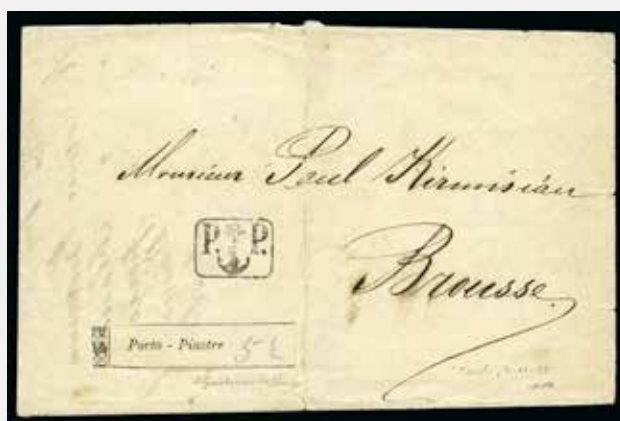 Monsieur Paul Kirmisian
P. P.
Brousse
Porto - Piastre